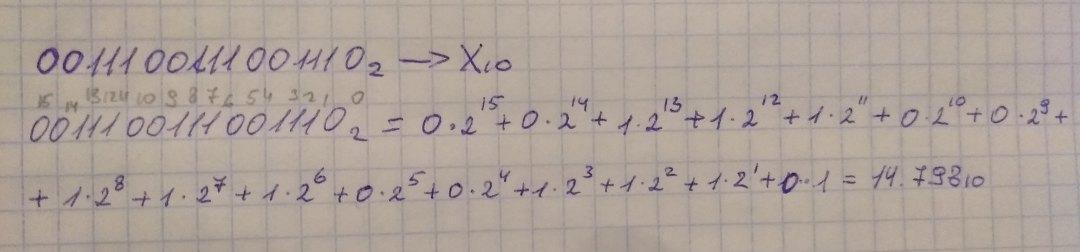 0011100111001110₂ → X₁₀
15 14 13 12 11 10 9 8 7 6 5 4 3 2 1 0
0011100111001110₂ = 0·2¹⁵ + 0·2¹⁴ + 1·2¹³ + 1·2¹² + 1·2¹¹ + 0·2¹⁰ + 0·2⁹ +
+ 1·2⁸ + 1·2⁷ + 1·2⁶ + 0·2⁵ + 0·2⁴ + 1·2³ + 1·2² + 1·2¹ + 0·1 = 14.798₁₀